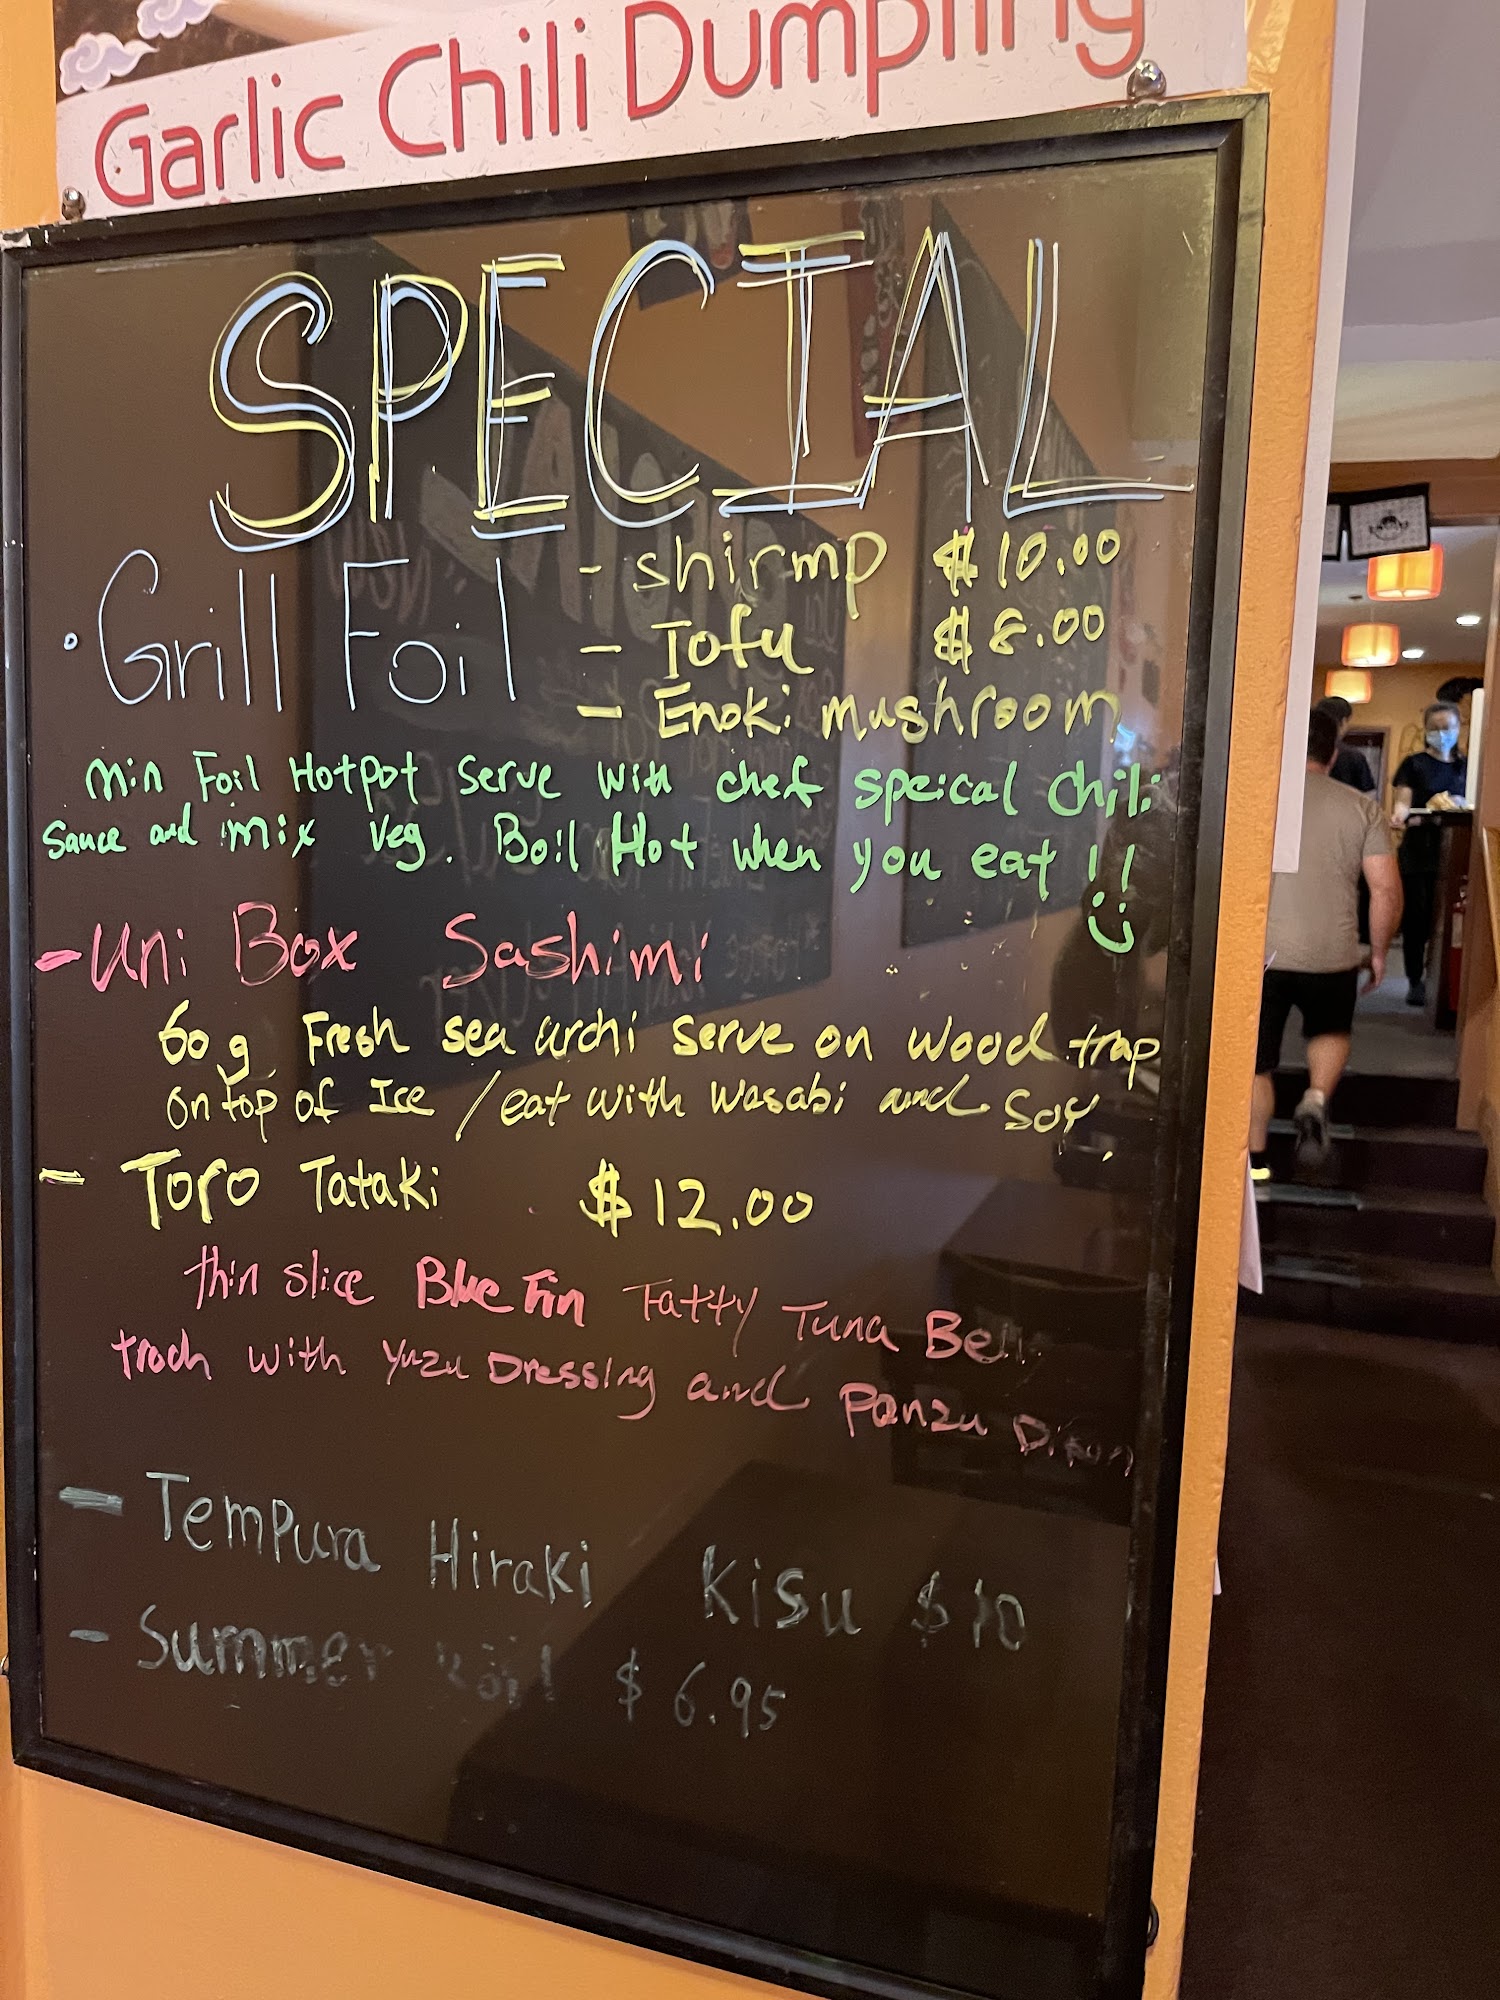 Garlic Chili Dumpling
SPECIAL
• Grill Foil - shirmp $10.00
- Tofu $8.00
- Enoki mushroom
min Foil Hotpot serve with chef speical chili
sauce and mix veg. Boil Hot when you eat !! :)
- Uni Box Sashimi
60 g Fresh sea urchi serve on wood trap
on top of Ice / eat with wasabi and soy
- Toro Tataki $12.00
thin slice Blue Fin Fatty Tuna
troch with Yuzu Dressing and Ponzu
- Tempura Hiraki Kisu $10
- Summer $6.95